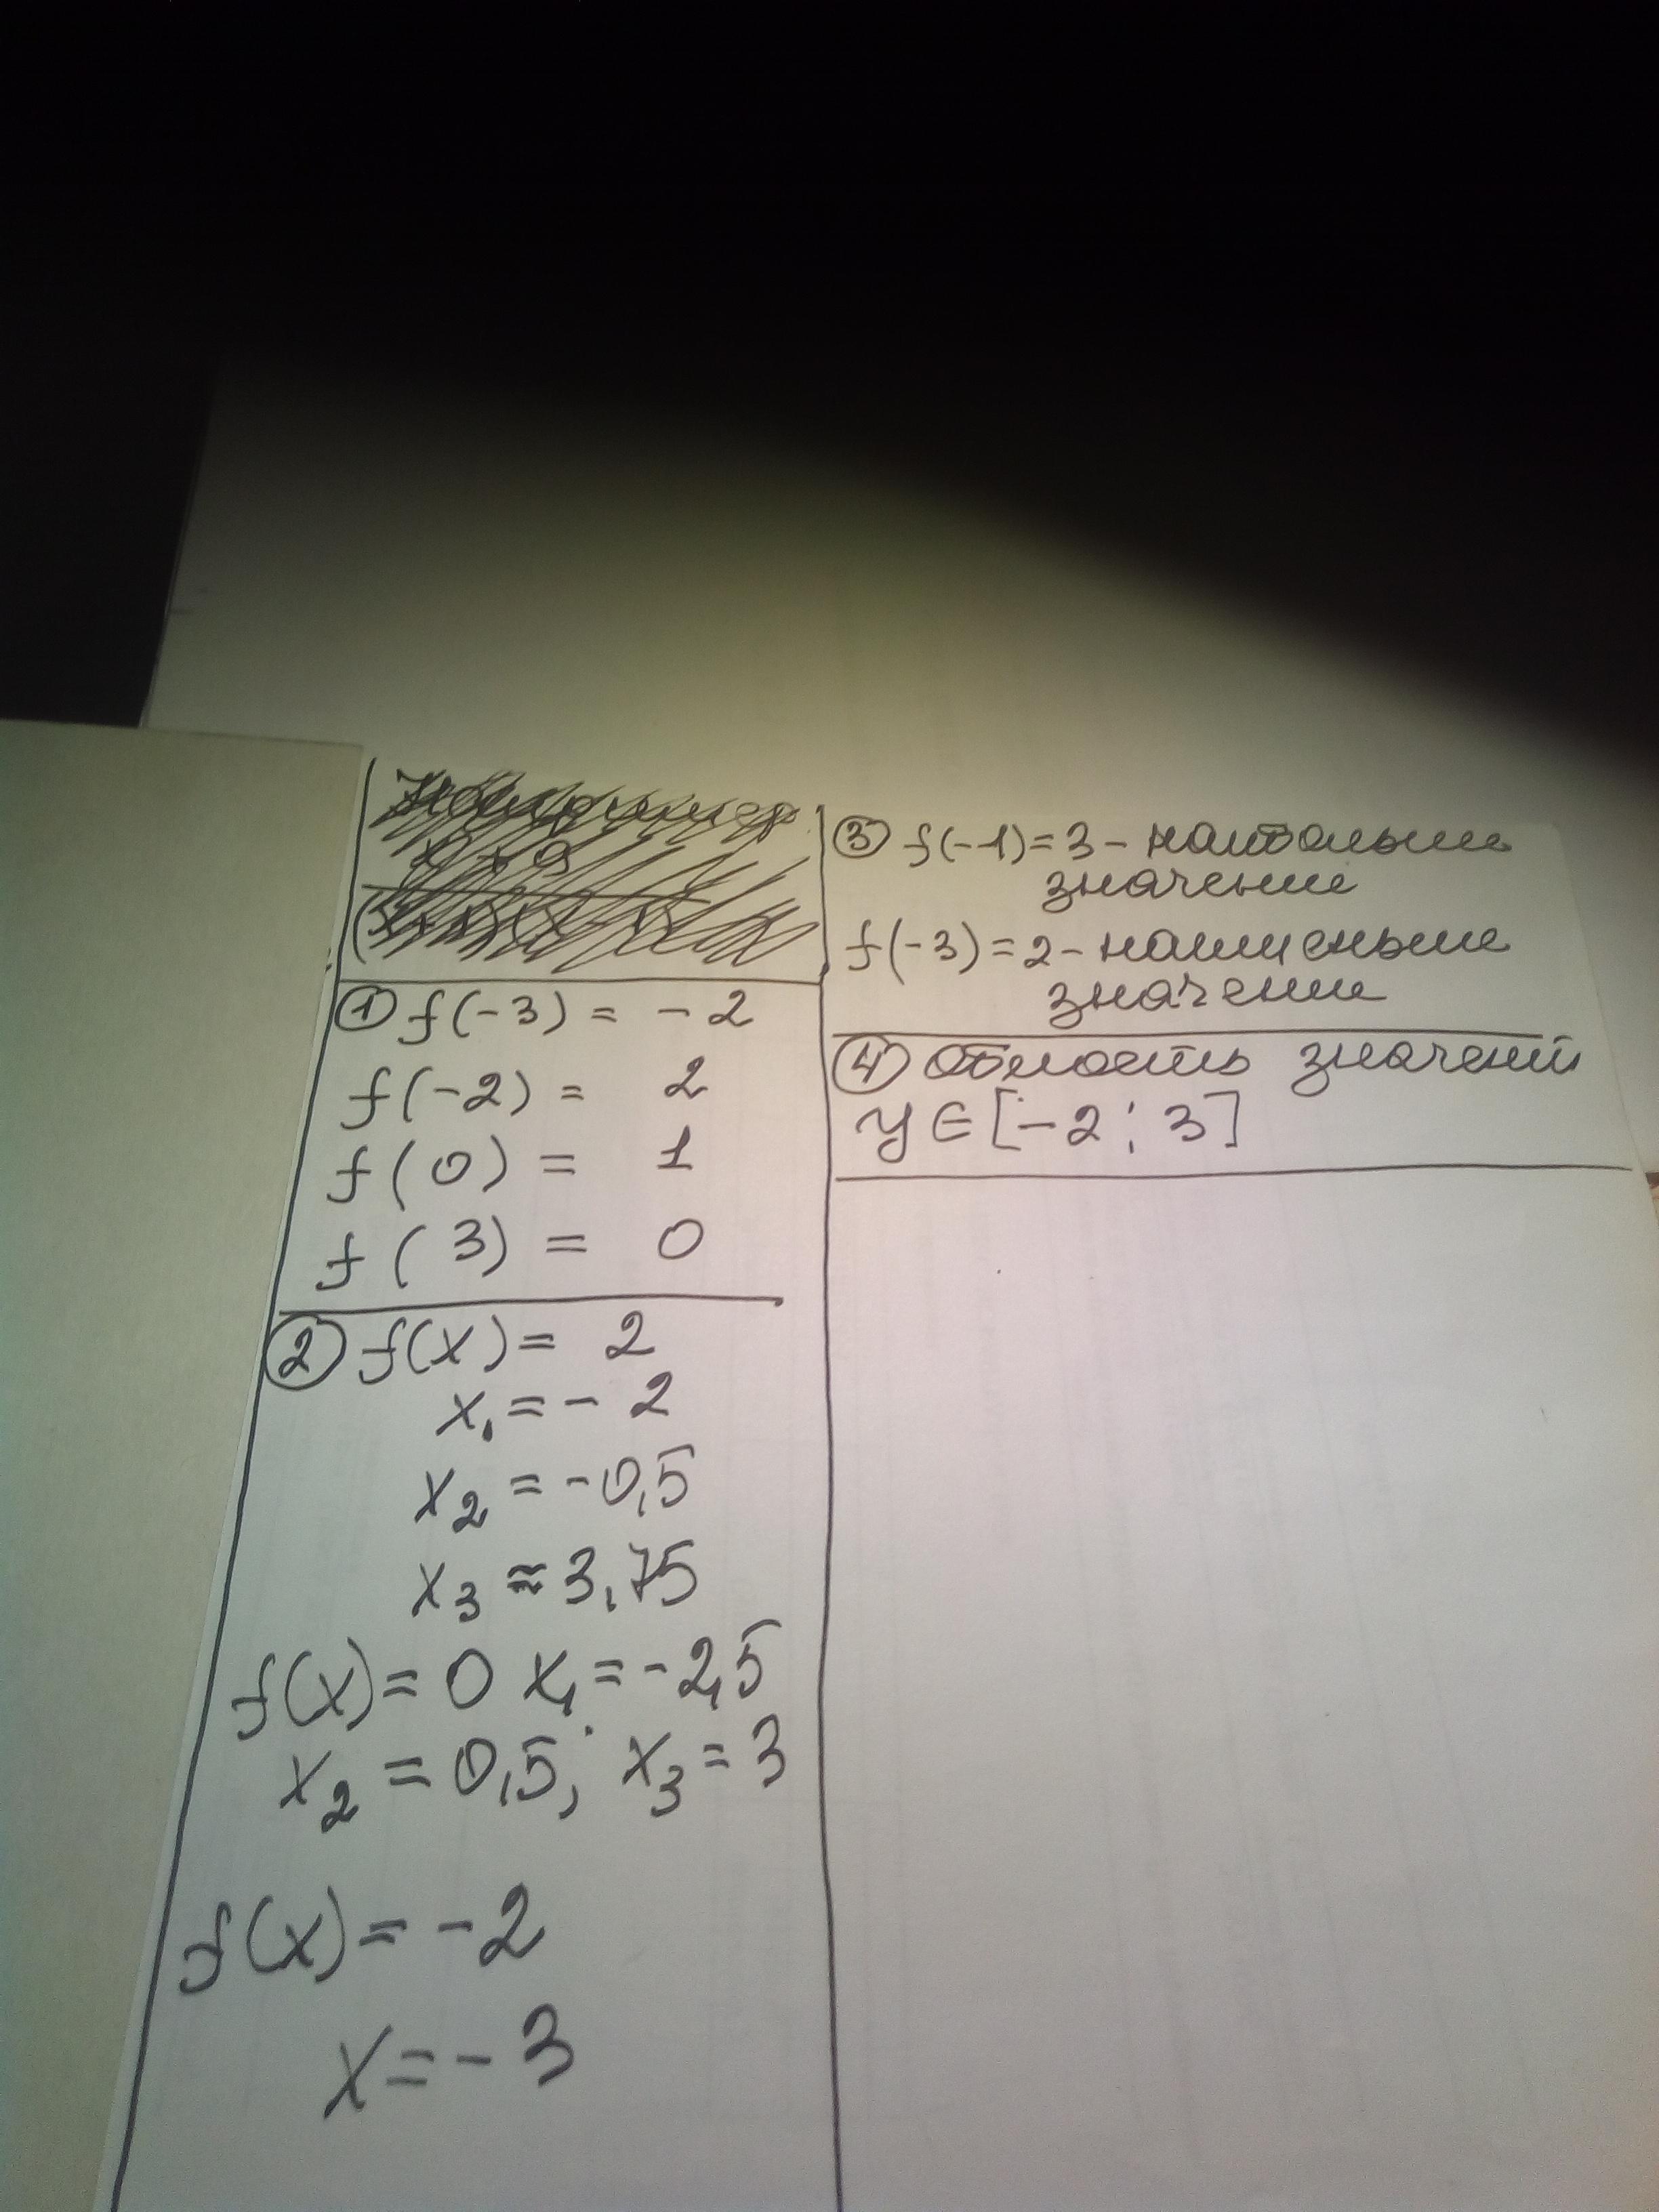 ① f(-3) = -2
f(-2) = 2
f(0) = 1
f(3) = 0
② f(x) = 2
x₁ = -2
x₂ = -0,5
x₃ ≈ 3,75
f(x) = 0 x₁ = -2,5
x₂ = 0,5; x₃ = 3
f(x) = -2
x = -3
③ f(-1) = 3 - наибольшее
значение
f(-3) = 2 - наименьшее
значение
④ Область значений
y ∈ [-2; 3]